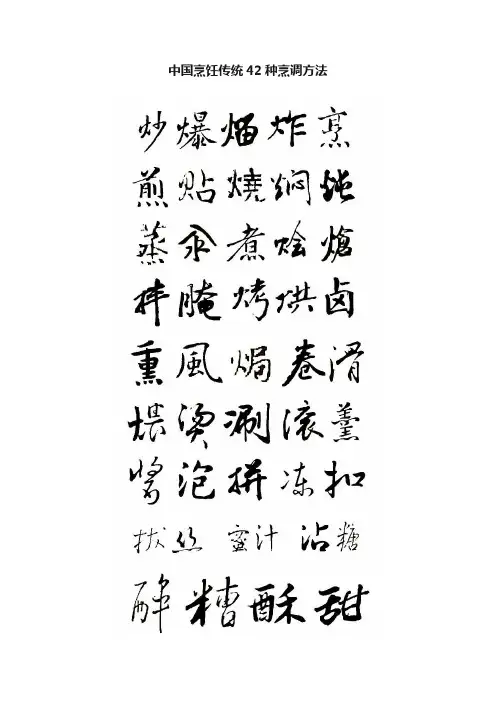 中国烹饪传统42种烹调方法
炒爆熘炸烹
煎貼燒焖炖
蒸汆煮烩熗
拌腌烤烘卤
熏風焗卷滑
煨燙涮滚羹
醬泡拼冻扣
拔丝 蜜汁 沾糖
醉糟酥甜